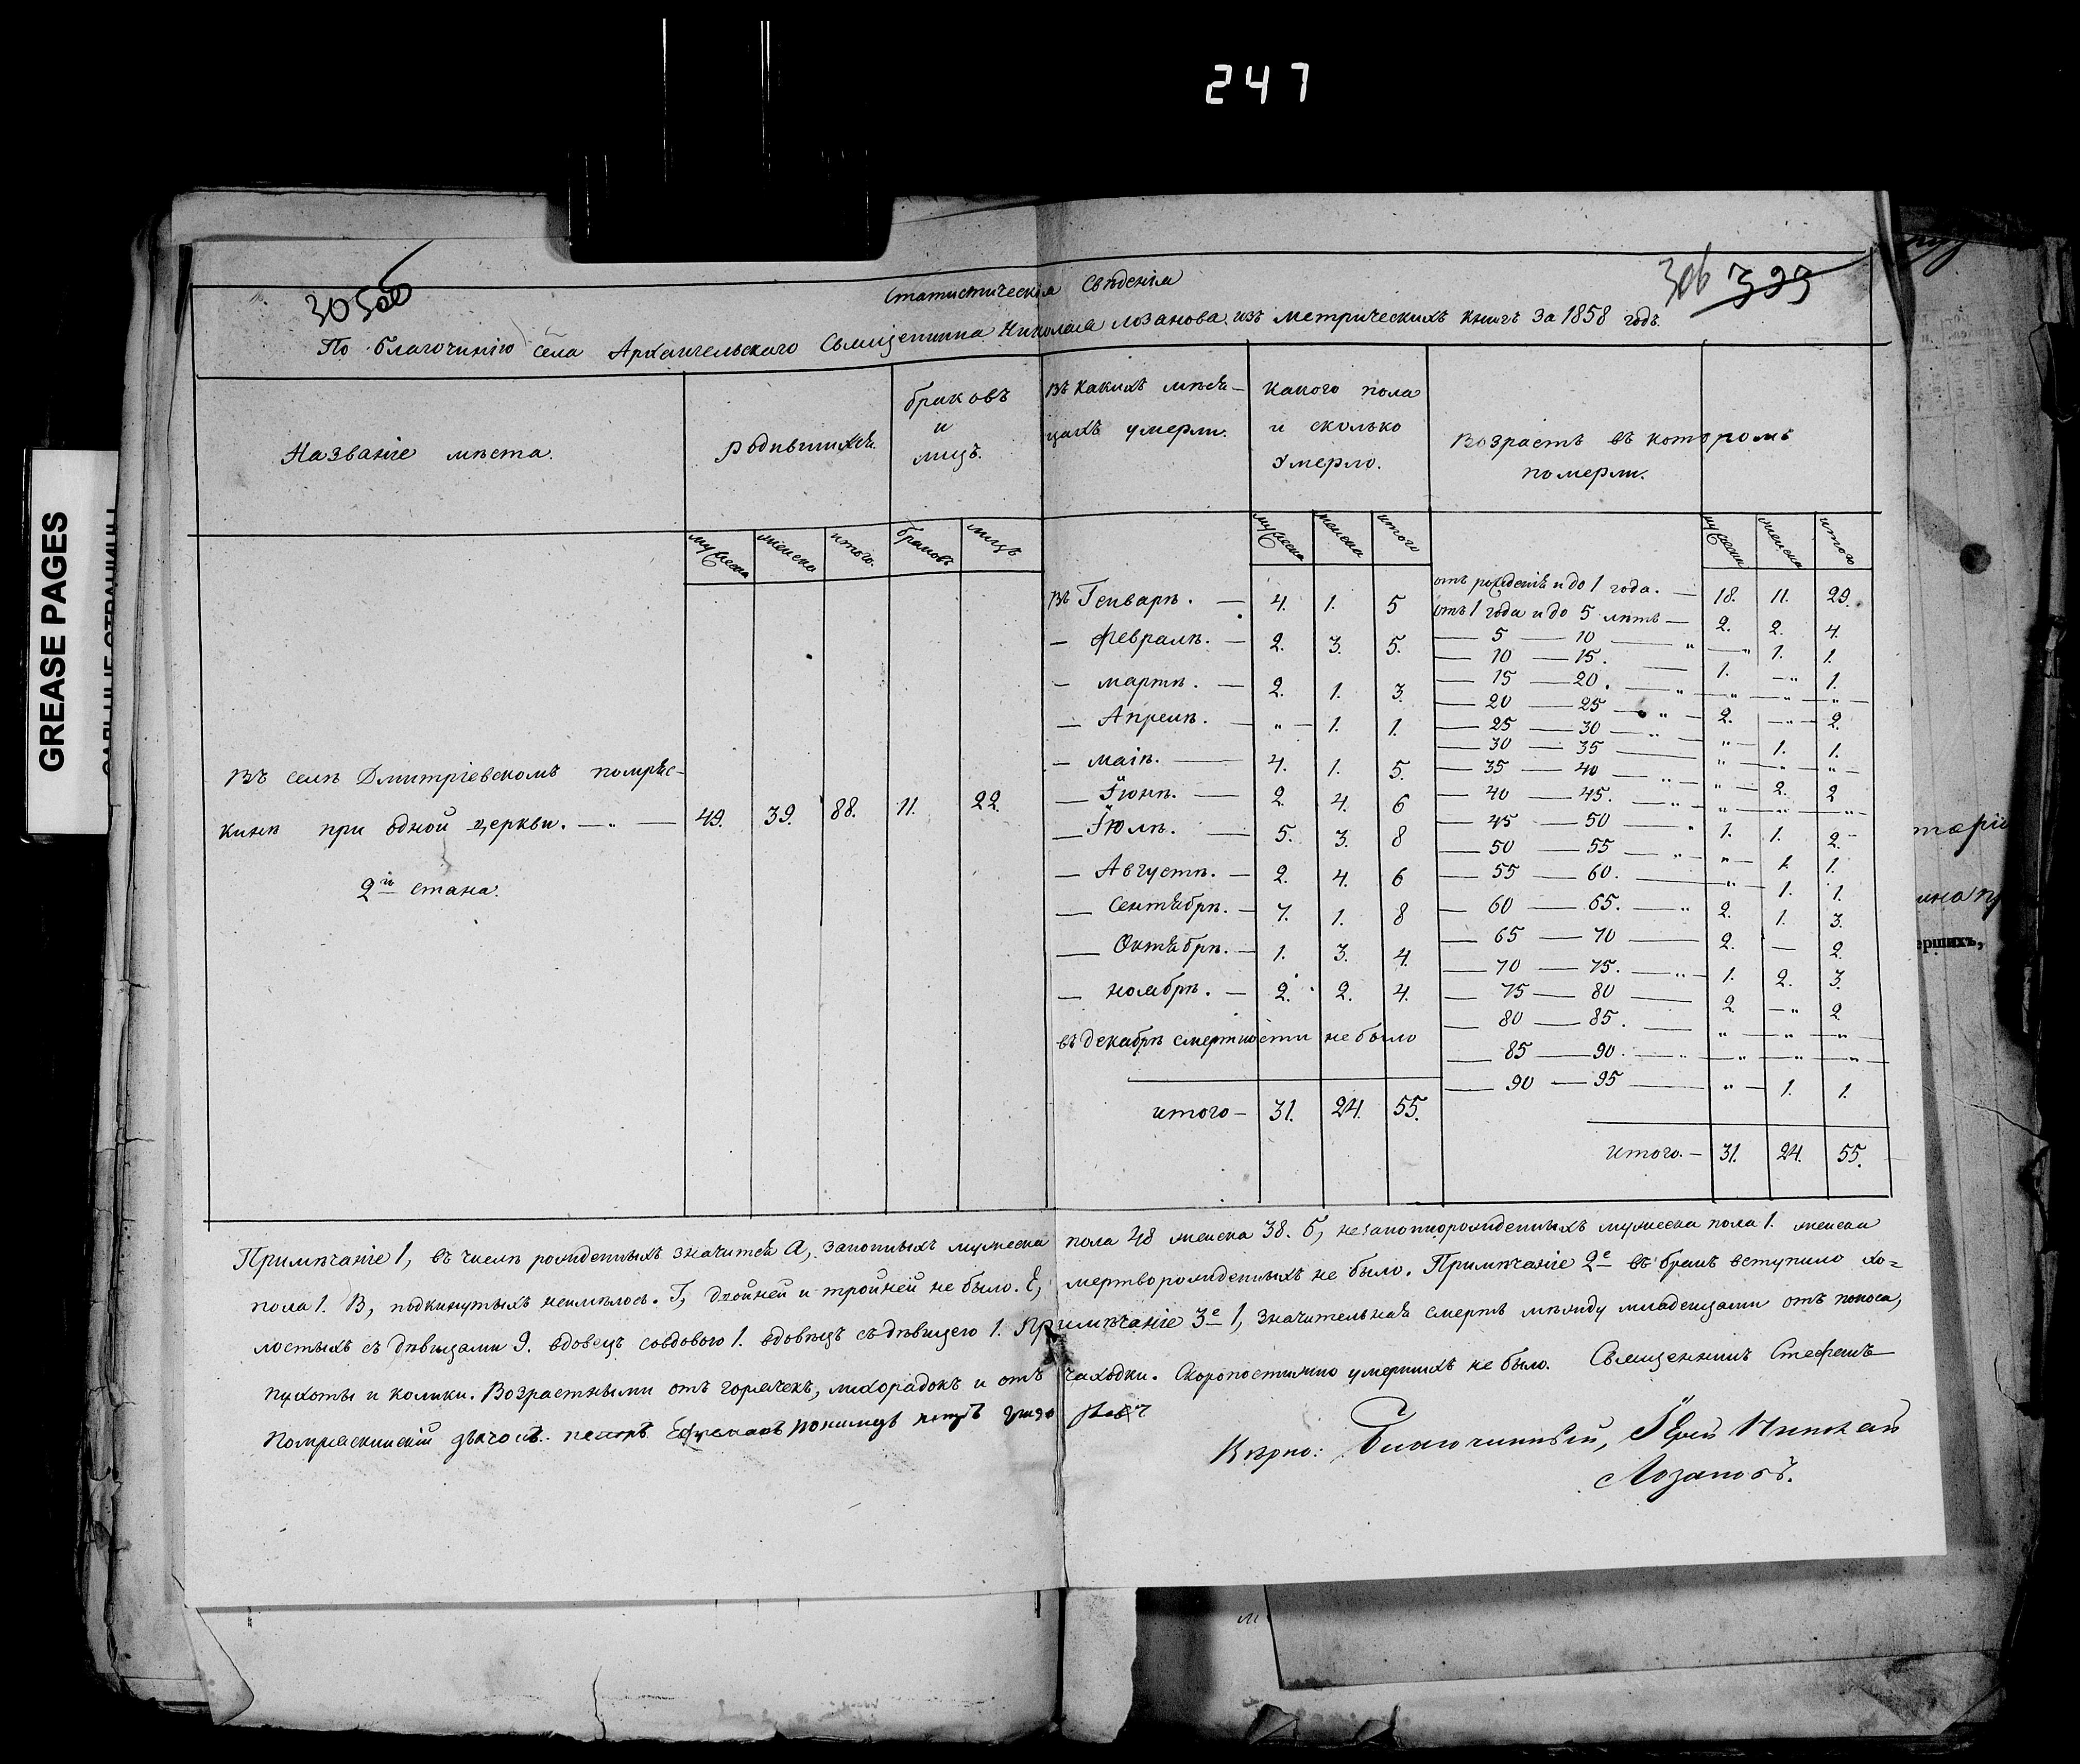 247
GREASE PAGES
305об
306 323
Статистическія Свѣденія
По благочинію села Архангельскаго Священника Николая Лозанова изъ метрическихъ книгъ за 1858 годъ.
Названіе мѣста.
Родившихся.
браковъ
и
лицъ.
Въ какихъ мѣся-
цахъ умерли.
Какого пола
и сколько
умерло.
Возрастъ въ которомъ
померли.
мужеска женска итого. браковъ лицъ
мужеска женска итого
мужеска женска итого
Въ селѣ Дмитріевскомъ помряс-
кинѣ при одной церкви. — „ — 49. 39. 88. 11. 22.
2й стана.
Въ Генварѣ. — 4. 1. 5
— Февралѣ. — 2. 3. 5.
— мартѣ. — 2. 1. 3.
— Апрелѣ. — „ — 1. 1.
— маіѣ. — 4. 1. 5.
— Іюнѣ. — 2. 4. 6
— Іюлѣ. — 5. 3. 8
— Августѣ. — 2. 4. 6
— Сентябрѣ. — 7. 1. 8
— Октябрѣ. — 1. 3. 4.
— ноябрѣ. — 2. 2. 4.
въ декабрѣ смертности не было
итого — 31. 24. 55.
отъ рожденія и до 1 года. — 18. 11. 29.
отъ 1 года и до 5 лѣтъ — 2. 2. 4.
— 5 — 10 — „ — „ 1. 1.
— 10 — 15. — 1. — „ 1.
— 15 — 20. — „ — „ — „ —
— 20 — 25 — „ — 2. — „ — 2.
— 25 — 30 — „ — „ — 1. 1.
— 30 — 35 — „ — „ — „ —
— 35 — 40 — „ — „ — 2. 2
— 40 — 45. — „ — „ — „ — „ —
— 45 — 50 — „ 1. 1. 2.
— 50 — 55 — „ — „ — 1. 1.
— 55 — 60. — „ — 1. 1.
— 60 — 65. — „ 2. 1. 3.
— 65 — 70 — 2. — 2.
— 70 — 75. — „ — 1. 2. 3.
— 75 — 80 — 2 — „ 2
— 80 — 85. — „ — „ — „ —
— 85 — 90. — „ — „ — „ — „ —
— 90 — 95 — „ — 1. 1.
итого. — 31. 24. 55.
Примѣчаніе 1, въ числѣ рожденныхъ значится А, законныхъ мужеска пола 48 женска 38. Б, незаконнорожденныхъ мужеска пола 1. женска
пола 1. В, подкинутыхъ неимѣлось. Г, двойней и тройней не было. Е, мертворожденныхъ не было. Примѣчаніе 2е въ бракъ вступило хо=
лостыхъ съ дѣвицами 9. вдовецъ совдовою 1. вдовецъ съ дѣвицею 1. Примѣчаніе 3е 1, значительная смерть между младенцами отъ поноса,
пухоты и колики. Возрастными отъ горячекъ, лихорадокъ и отъ чаходки. Скоропостижно умершихъ не было. Священникъ Стефанъ
Помряскинскій
Вѣрно: Благочинный, Іерей Николай
Лозановъ.
ершихъ,